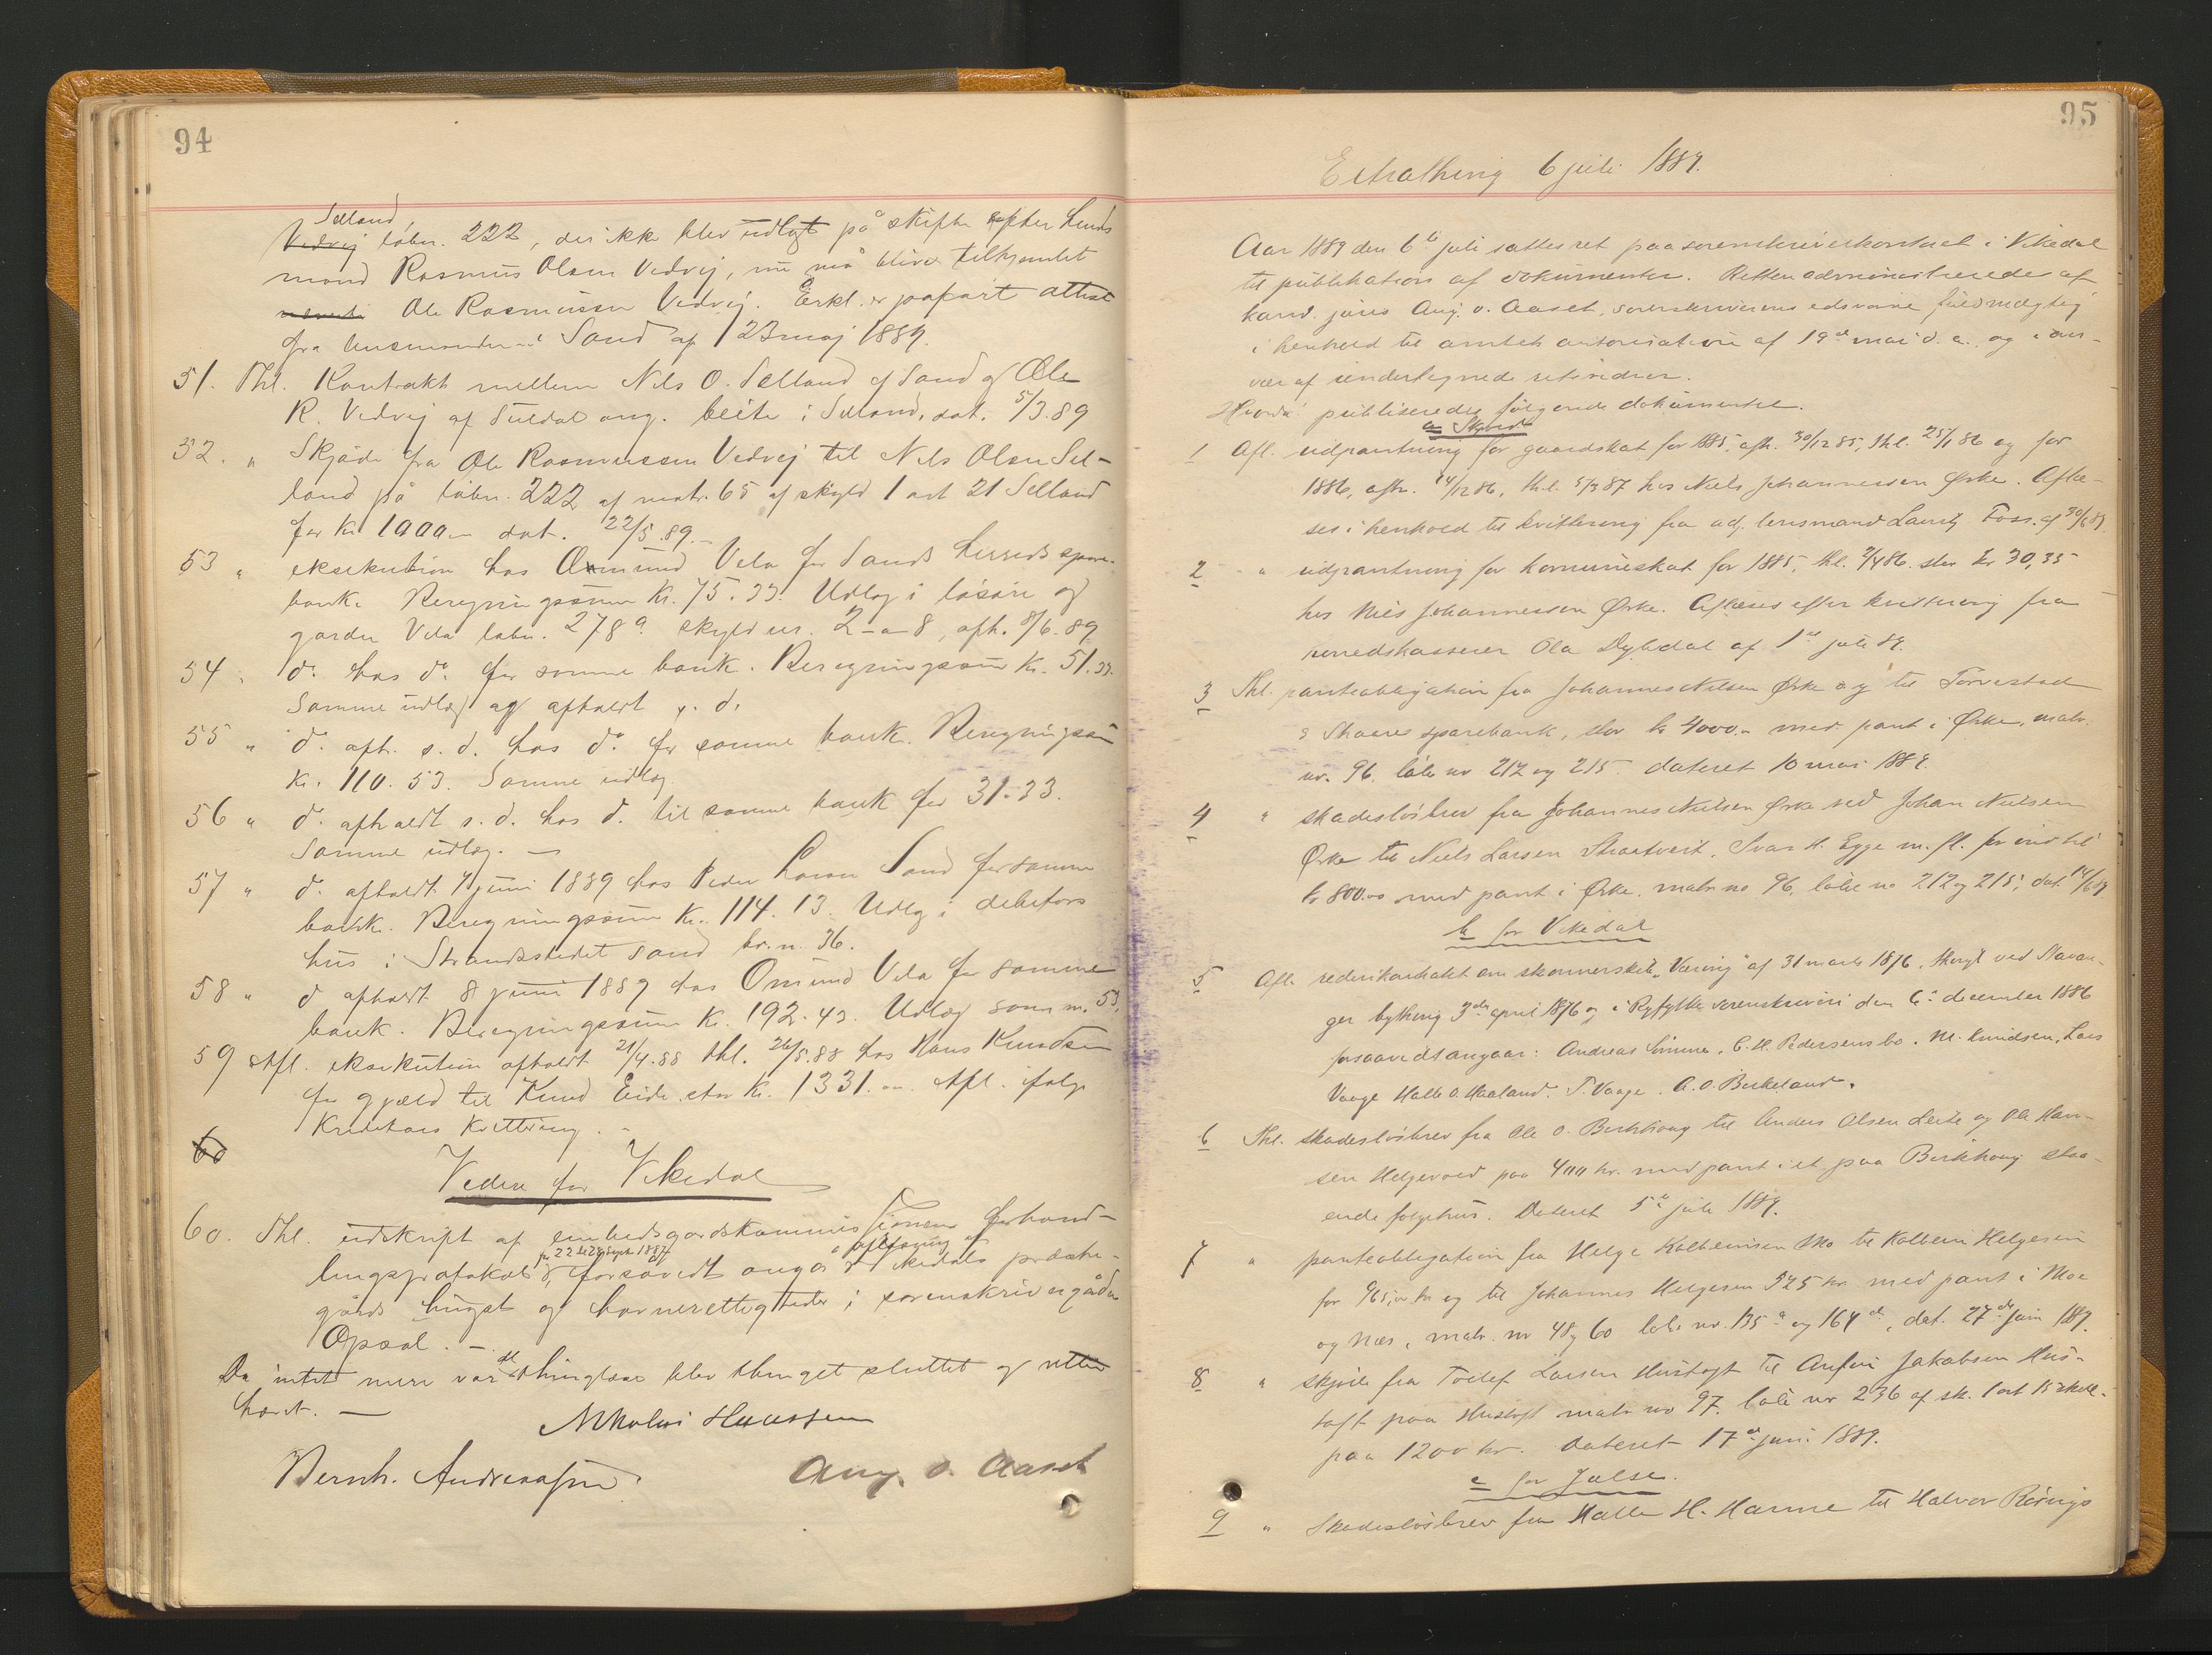 94
Selland
Vedvej løbn. 222, der ikke blev udlagt på skifte efter Lends
mand Rasmus Olsen Vedvej, nu må blive tilkjendt
Ole Rasmussen Vedvej. Erkl. er påført attest
fra Lensmanden i Sand af 23 maj 1889.
51. Thl. Kontrakt mellem Nils O. Selland af Sand og Ole
R. Vedvej af Suldal ang. beite i Selland, dat. 5/3.89
52. " Skjøde fra Ole Rasmussen Vedvej til Nils Olsen Sel-
land på løbn. 222 af matr. 65 af skyld 1 ort 21 Selland
for Kr 1000 dat. 22/5.89.
53 " eksekution hos Omund Vela for Sands herreds spare-
bank. Beregningssum Kr. 75.33. Udlæg i løsøre og
garden Vela løbn. 278a skyld ur. 2-a-8, afh. 8/6.89
54 " do hos do for samme bank. Beregningssum Kr. 51.33.
Samme udlæg og afholdt s. d.
55 " do afh. s. d. hos do for samme bank. Beregningssum
Kr. 110.53. Samme udlæg.
56 " do afholdt s. d. hos do til samme bank for 31.33.
Samme udlæg. —
57 " do afholdt 7 juni 1889 hos Peder Larsen Sand for samme
bank. Beregningssum Kr. 114.13. Udlæg i debitors
hus i Strandstedet Sand br. n. 36.
58 " do afholdt 8 juni 1889 hos Omund Vela for samme
bank. Beregningssum Kr. 192.43. Udlæg som n. 53.
59 Afl. eksekution afholdt 21/4.88 thl. 26/5.88 hos Hans Knudsen
for gjæld til Knud Eide stor Kr. 1331. Afl. ifølge
Kreditors Kvittering. -
60
Videre for Vikedal
60. Thl. udskrift af embedsgårdskommissionens forhand-
fr 22 til 24 Sept. 1887 afløsning af
lingsprotokol, forsåvidt angår Vikedals præste-
gårds hugst og havnerettigheder i sorenskrivergården
Opsal. -
Da intet mere var at thinglæse blev thinget sluttet og retten
hævet. —
Nikolai Haassen
Bernh. Andreassen Aug. O. Aaset
95
Extrathing 6 juli 1889.
Aar 1889 den 6te juli sattes ret paa sorenskriverkontoret i Vikedal
til publikation af dokumenter. Retten administreredes af
kand. juris Aug. O. Aaset, sorenskriverens edsvorne fuldmægtig
i henhold til amtets autorisation af 19de mai d. a. og i over-
vær af undertegnede retsvidner.
Hvorda publiseredes følgende dokumenter.
1 Afl. udpantning for gaardskat for 1885, afh. 30/12 85, thl. 25/1 86 og for
1886, afh. 14/12 86, thl. 5/3 87 hos Niels Johannessen Ørke. Aflæ-
ses i henhold til kvittering fra adj. lensmand Lauritz Foss. af 30/6 89.
2 " udpantning for kommuneskat for 1885, thl. 2/4 86. stor kr 30,35
hos Niels Johannessen Ørke. Aflæses efter kvittering fra
herredskasserer Ola Dybdal af 1ste juli 89.
3 Thl. panteobligation fra Johannes Nilsen Ørke og til Torvestad
& Skaare sparebank, stor kr 4000.- med pant i Ørke, matr.
nr. 96. løbe nr 212 og 215. dateret 10 mai 1889.
4 " skadesløsbrev fra Johannes Nielsen Ørke ved Johan Nielsen
Ørke til Niels Larsen Straatveit, Svar H. Egge m. fl. for indtil
kr 800.00 med pant i Ørke, matr no 96, løbe no 212 og 215, dat 14/6 89.
b for Vikedal
5 Afl. rederikontrakt om skonnerskib "Væring" af 31 marts 1876, thingl ved Stavan-
ger bything 3die april 1876 og i Ryfylke sorenskriveri den 6te december 1886
forsaavidt angaar: Andreas Sømme, C. H. Pedersens bo, M. Knudsen, Lars
Vaage Halle O. Haaland. T. Vaage. A. O. Birkeland.
6 Thl. skadesløsbrev fra Ole O. Birkhaug til Anders Olsen Leite og Ole Han-
sen Helgevold paa 400 kr. med pant i et paa Birkhaug staa-
ende folgehus. Dateret 5te juli 1889.
7 " panteobligation fra Helge Kolbeinsen Mo til Kolbein Helgesen
for 965,00 kr og til Johannes Helgesen 325 kr med pant i Moe
og Næs, matr. nr 48 og 60 løbe nr. 135a og 164d, dat. 27de juni 1889.
8 " skjøde fra Toilef Larsen Hustoft til Anfin Jakobsen Hus-
toft paa Hustoft matr. no 97. løbe nr 236 af sk. 1 ort 15 skill.
paa 1200 kr. Dateret 17de juni 1889.
c for Jælse.
9 " Skadesløsbrev fra Halle H. Hamre til Halvor Rørvigs